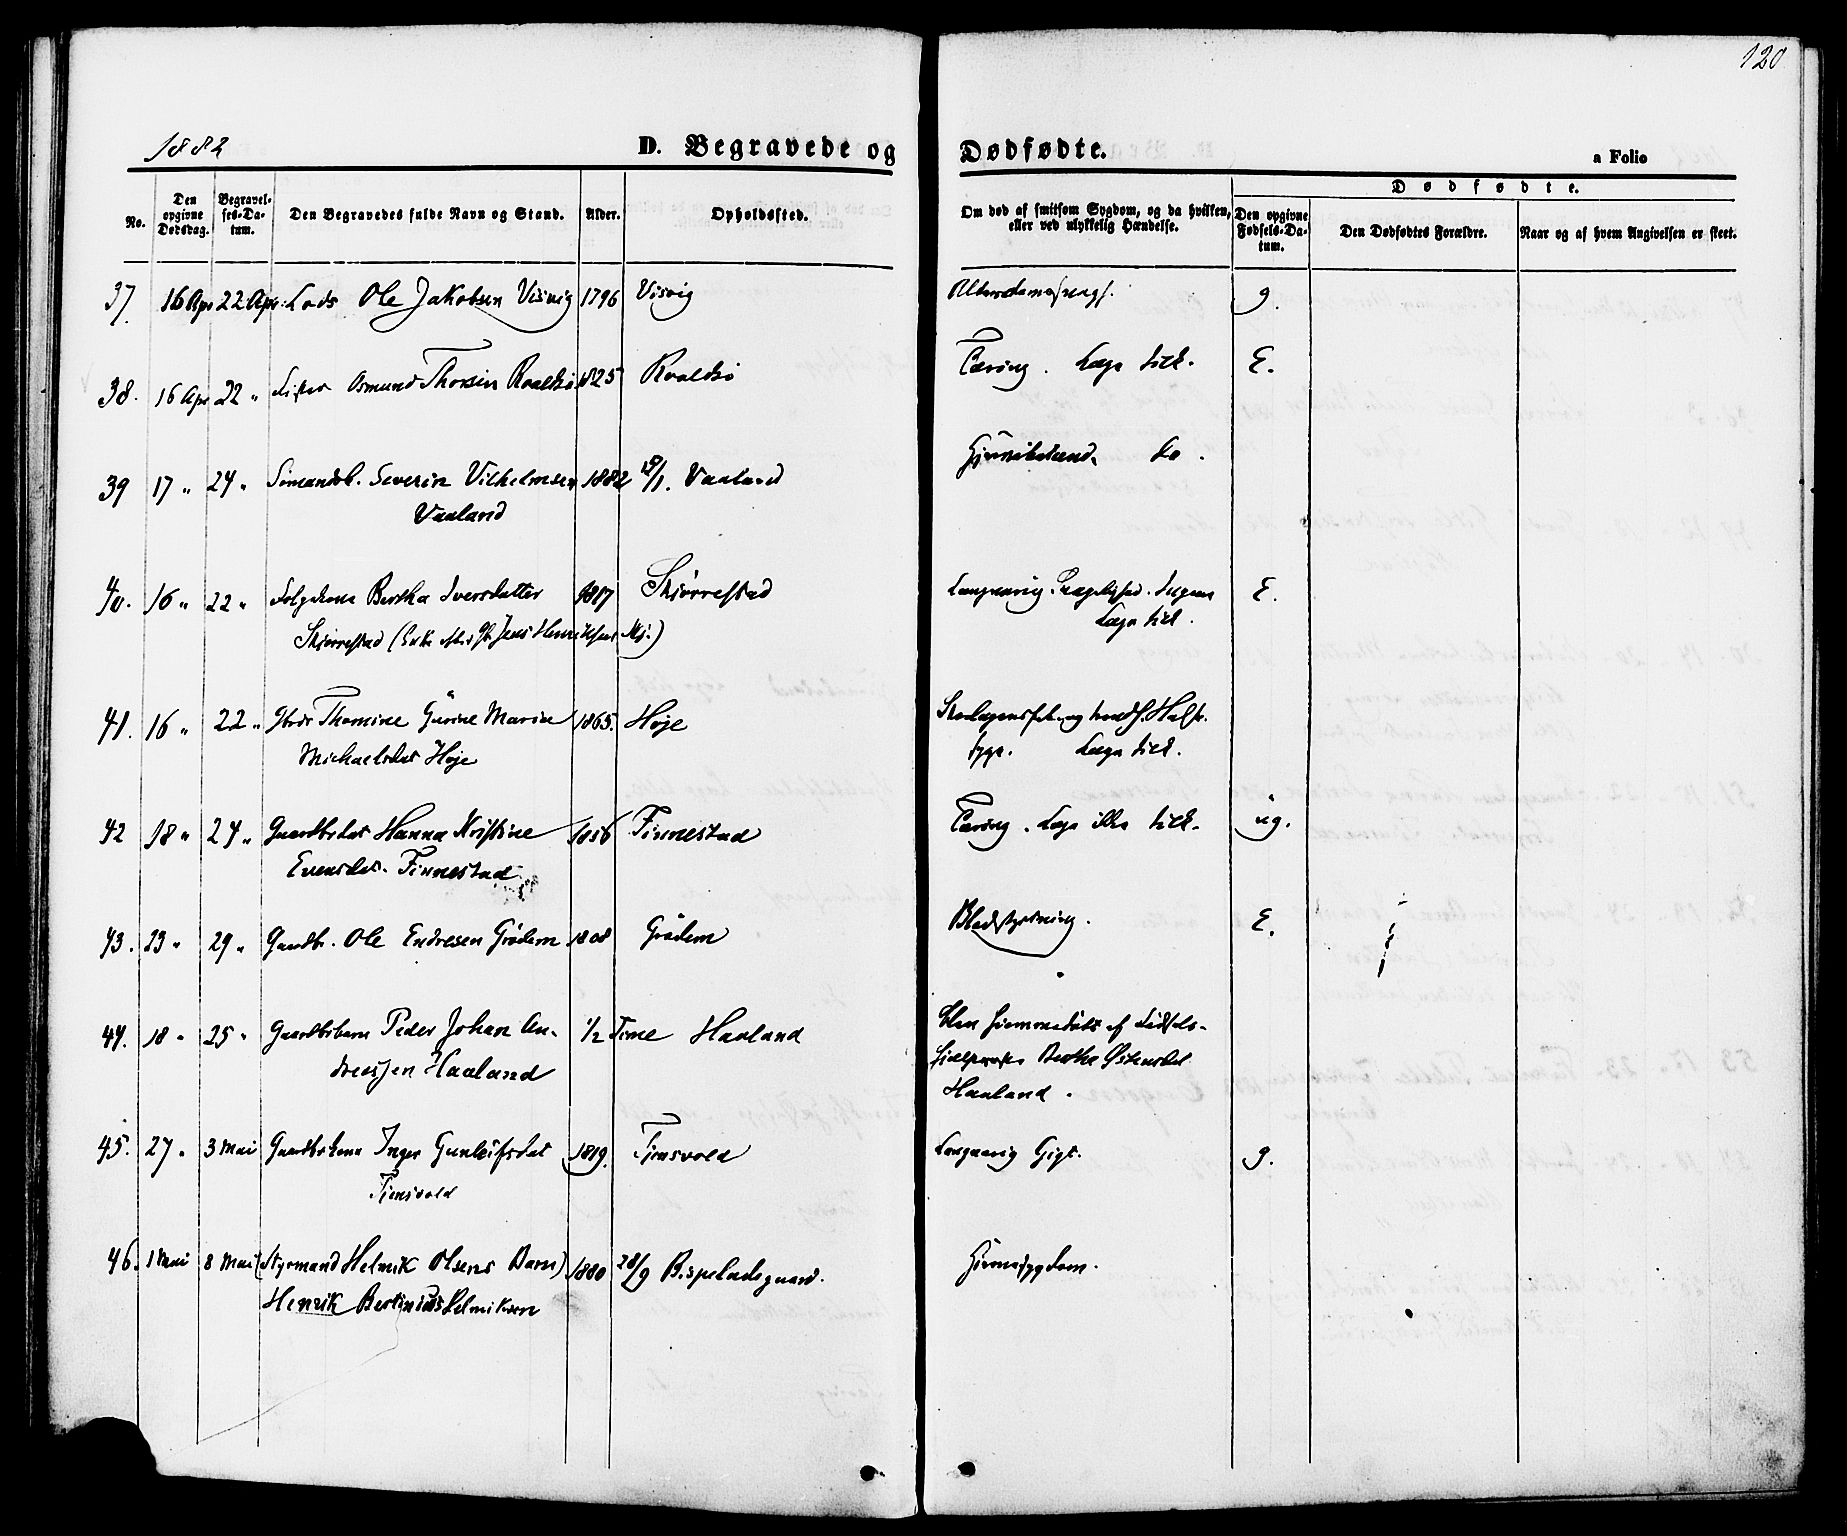 120
1882
D. Begravede og Dødfødte.
a Folio
No.
Den opgivne Dødsdag.
Begravelses-Datum.
Den Begravedes fulde Navn og Stand.
Alder.
Opholdssted.
Om død af smitsom Sygdom, og da hvilken, eller ved ulykkelig Hændelse.
Dødfødte.
Den opgivne Fødsels-Datum.
Den Dødfødtes Forældre.
Naar og af hvem Angivelsen er skeet.
37. 16 Apr 22 Apr. Lods Ole Jakobsen Visvig 1796 Visvig g.
38. 16 Apr 22 " Osmund Thorsen Roaldsø 1825 Roaldsø Tæring. Læge tilk. E.
39 17 " 24 " Sømandsb. Severin Vilhelmsen 1882 /1. Vaaland do.
Vaaland
40. 16 " 22 " Bertha Iversdatter 1817 Skjørrestad Langvarig Læge E.
Skjørrestad (Enke Jens Henriksen Skj.) Læge tilk.
41. 16 " 22 " Thomine Gurine Marie 1865. Høje Skarlagensfeb. og
Michaelsdat Høje Læge tilk.
42 18 " 24 " Gaardbrdat Hanna Kristine 1856 Finnestad Tæring. Læge ikke tilk. ug.
Evensdat. Finnestad
43. 23 " 29 " Gaardbr. Ole Endresen Grødem 1808 Grødem Blodstyrtning. E.
44. 18 " 25 " Gaardbrbarn Peder Johan An- 1/2 Time Haaland hjemmedøbt af Fødsels-
dreassen Haaland Bertha
Haaland.
45. 27 " 3 Mai Gaardbrkone Inger Gunleifsdat 1819. Timsvold Langvarig Gigt. g.
Timsvold
46. 1 Mai 8 Mai (Styrmand Helmik Olsens Barn) 1880 28/9 Bispeladegaard. Hjernesygdom.
Henrik Bertinius Helmiksen